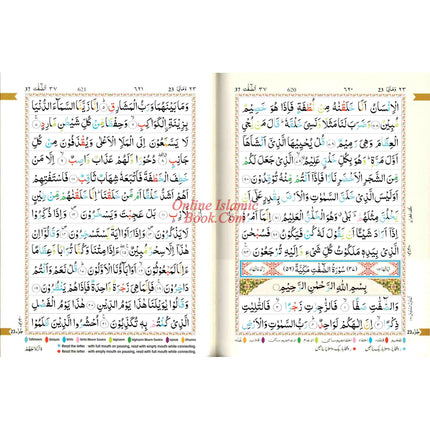 23 وَمَالِيَ ٢٣ ٦٢٠ 620 37 الصّٰفّٰت ٣٧
الْاِنْسَانُ اَنَّا خَلَقْنٰهُ مِنْ نُّطْفَةٍ فَاِذَا هُوَ خَصِيْمٌ
مُّبِيْنٌ وَضَرَبَ لَنَا مَثَلًا وَّنَسِيَ خَلْقَهٗ قَالَ مَنْ
يُّحْيِ الْعِظَامَ وَهِيَ رَمِيْمٌ قُلْ يُحْيِيْهَا الَّذِيْٓ اَنْشَاَهَآ
اَوَّلَ مَرَّةٍ وَهُوَ بِكُلِّ خَلْقٍ عَلِيْمٌ الَّذِيْ جَعَلَ لَكُمْ
مِّنَ الشَّجَرِ الْاَخْضَرِ نَارًا فَاِذَآ اَنْتُمْ مِّنْهُ تُوْقِدُوْنَ
اَوَلَيْسَ الَّذِيْ خَلَقَ السَّمٰوٰتِ وَالْاَرْضَ بِقٰدِرٍ عَلٰٓى اَنْ
يَّخْلُقَ مِثْلَهُمْ بَلٰى وَهُوَ الْخَلّٰقُ الْعَلِيْمُ اِنَّمَآ اَمْرُهٗٓ
اِذَآ اَرَادَ شَيْئًا اَنْ يَّقُوْلَ لَهٗ كُنْ فَيَكُوْنُ فَسُبْحٰنَ
الَّذِيْ بِيَدِهٖ مَلَكُوْتُ كُلِّ شَيْءٍ وَّاِلَيْهِ تُرْجَعُوْنَ
(٣٧) سُوْرَةُ الصّٰٓفّٰتِ مَكِّيَّةٌ (٥٦)
بِسْمِ اللّٰهِ الرَّحْمٰنِ الرَّحِيْمِ
وَالصّٰٓفّٰتِ صَفًّا فَالزّٰجِرٰتِ زَجْرًا فَالتّٰلِيٰتِ
ذِكْرًا اِنَّ اِلٰهَكُمْ لَوَاحِدٌ رَبُّ السَّمٰوٰتِ وَالْاَرْضِ
23 وَمَالِيَ ٢٣ ٦٢١ 621 37 الصّٰفّٰت ٣٧
وَمَا بَيْنَهُمَا وَرَبُّ الْمَشَارِقِ اِنَّا زَيَّنَّا السَّمَآءَ الدُّنْيَا
بِزِيْنَةِ ِۨالْكَوَاكِبِ وَحِفْظًا مِّنْ كُلِّ شَيْطٰنٍ مَّارِدٍ
لَا يَسَّمَّعُوْنَ اِلَى الْمَلَاِ الْاَعْلٰى وَيُقْذَفُوْنَ مِنْ كُلِّ
جَانِبٍ دُحُوْرًا وَّلَهُمْ عَذَابٌ وَّاصِبٌ اِلَّا مَنْ
خَطِفَ الْخَطْفَةَ فَاَتْبَعَهٗ شِهَابٌ ثَاقِبٌ فَاسْتَفْتِهِمْ
اَهُمْ اَشَدُّ خَلْقًا اَمْ مَّنْ خَلَقْنَا اِنَّا خَلَقْنٰهُمْ مِّنْ طِيْنٍ
لَّازِبٍ بَلْ عَجِبْتَ وَيَسْخَرُوْنَ وَاِذَا ذُكِّرُوْا
لَا يَذْكُرُوْنَ وَاِذَا رَاَوْا اٰيَةً يَّسْتَسْخِرُوْنَ وَقَالُوْٓا اِنْ
هٰذَآ اِلَّا سِحْرٌ مُّبِيْنٌ ءَاِذَا مِتْنَا وَكُنَّا تُرَابًا وَّعِظَامًا
ءَاِنَّا لَمَبْعُوْثُوْنَ اَوَاٰبَآؤُنَا الْاَوَّلُوْنَ قُلْ نَعَمْ وَاَنْتُمْ
دَاخِرُوْنَ فَاِنَّمَا هِيَ زَجْرَةٌ وَّاحِدَةٌ فَاِذَا هُمْ يَنْظُرُوْنَ
وَقَالُوْا يٰوَيْلَنَا هٰذَا يَوْمُ الدِّيْنِ هٰذَا يَوْمُ الْفَصْلِ
الَّذِيْ كُنْتُمْ بِهٖ تُكَذِّبُوْنَ اُحْشُرُوا الَّذِيْنَ ظَلَمُوْا
Read the letter with full mouth on pausing, read with empty mouth while connecting.
Online Islamic
Book.Com